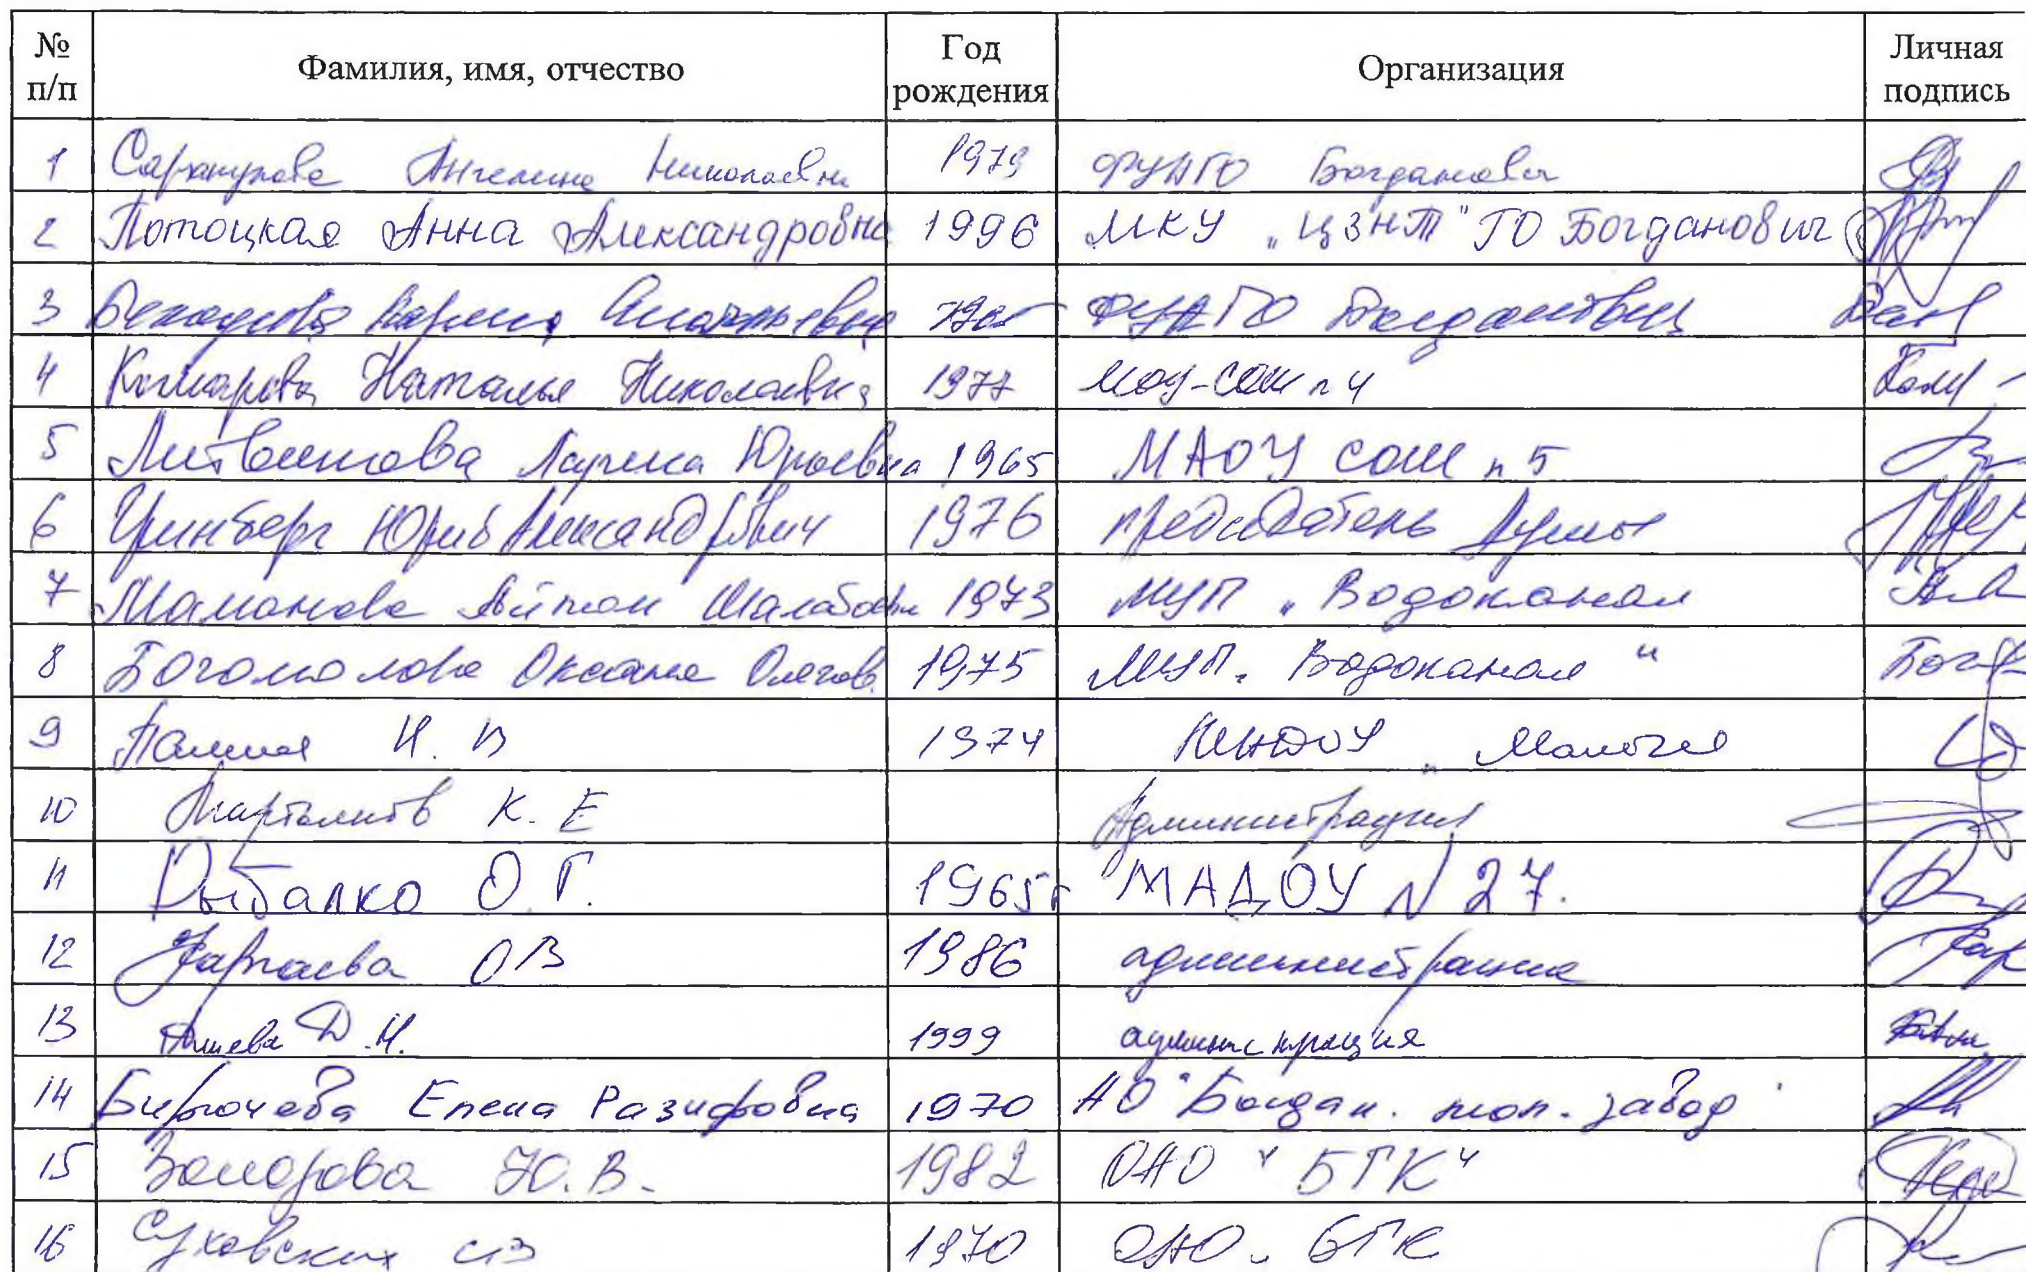 № п/п Фамилия, имя, отчество Год рождения Организация Личная подпись
1 Сарапулова Ангелина Николаевна 1979 ФУАГО Богданович
2 Потоцкая Анна Александровна 1996 МКУ "ЦЗНТ" ГО Богданович
3 ФУАГО Богданович
4 Комарова Наталья Николаевна 1977 МОУ-СОШ №4
5 Литвинова Лариса Юрьевна 1965 МАОУ СОШ №5
6 Гринберг Юрий Александрович 1976 председатель Думы
7 Маманова 1973 МУП "Водоканал
8 Богомолова Оксана Олегов. 1975 МУП "Водоканал"
9 1974
10 К. Е Администрация
11 Рыбалко О.Г. 1965г МАДОУ № 27.
12 ОВ 1986 администрация
13 Д.И. 1999 администрация
14 Бирючева Елена Разифовна 1970 АО "Богдан. мол. завод"
15 Ю.В. 1982 ОАО "БГК"
16 Суховских 1970 ОАО "БГК